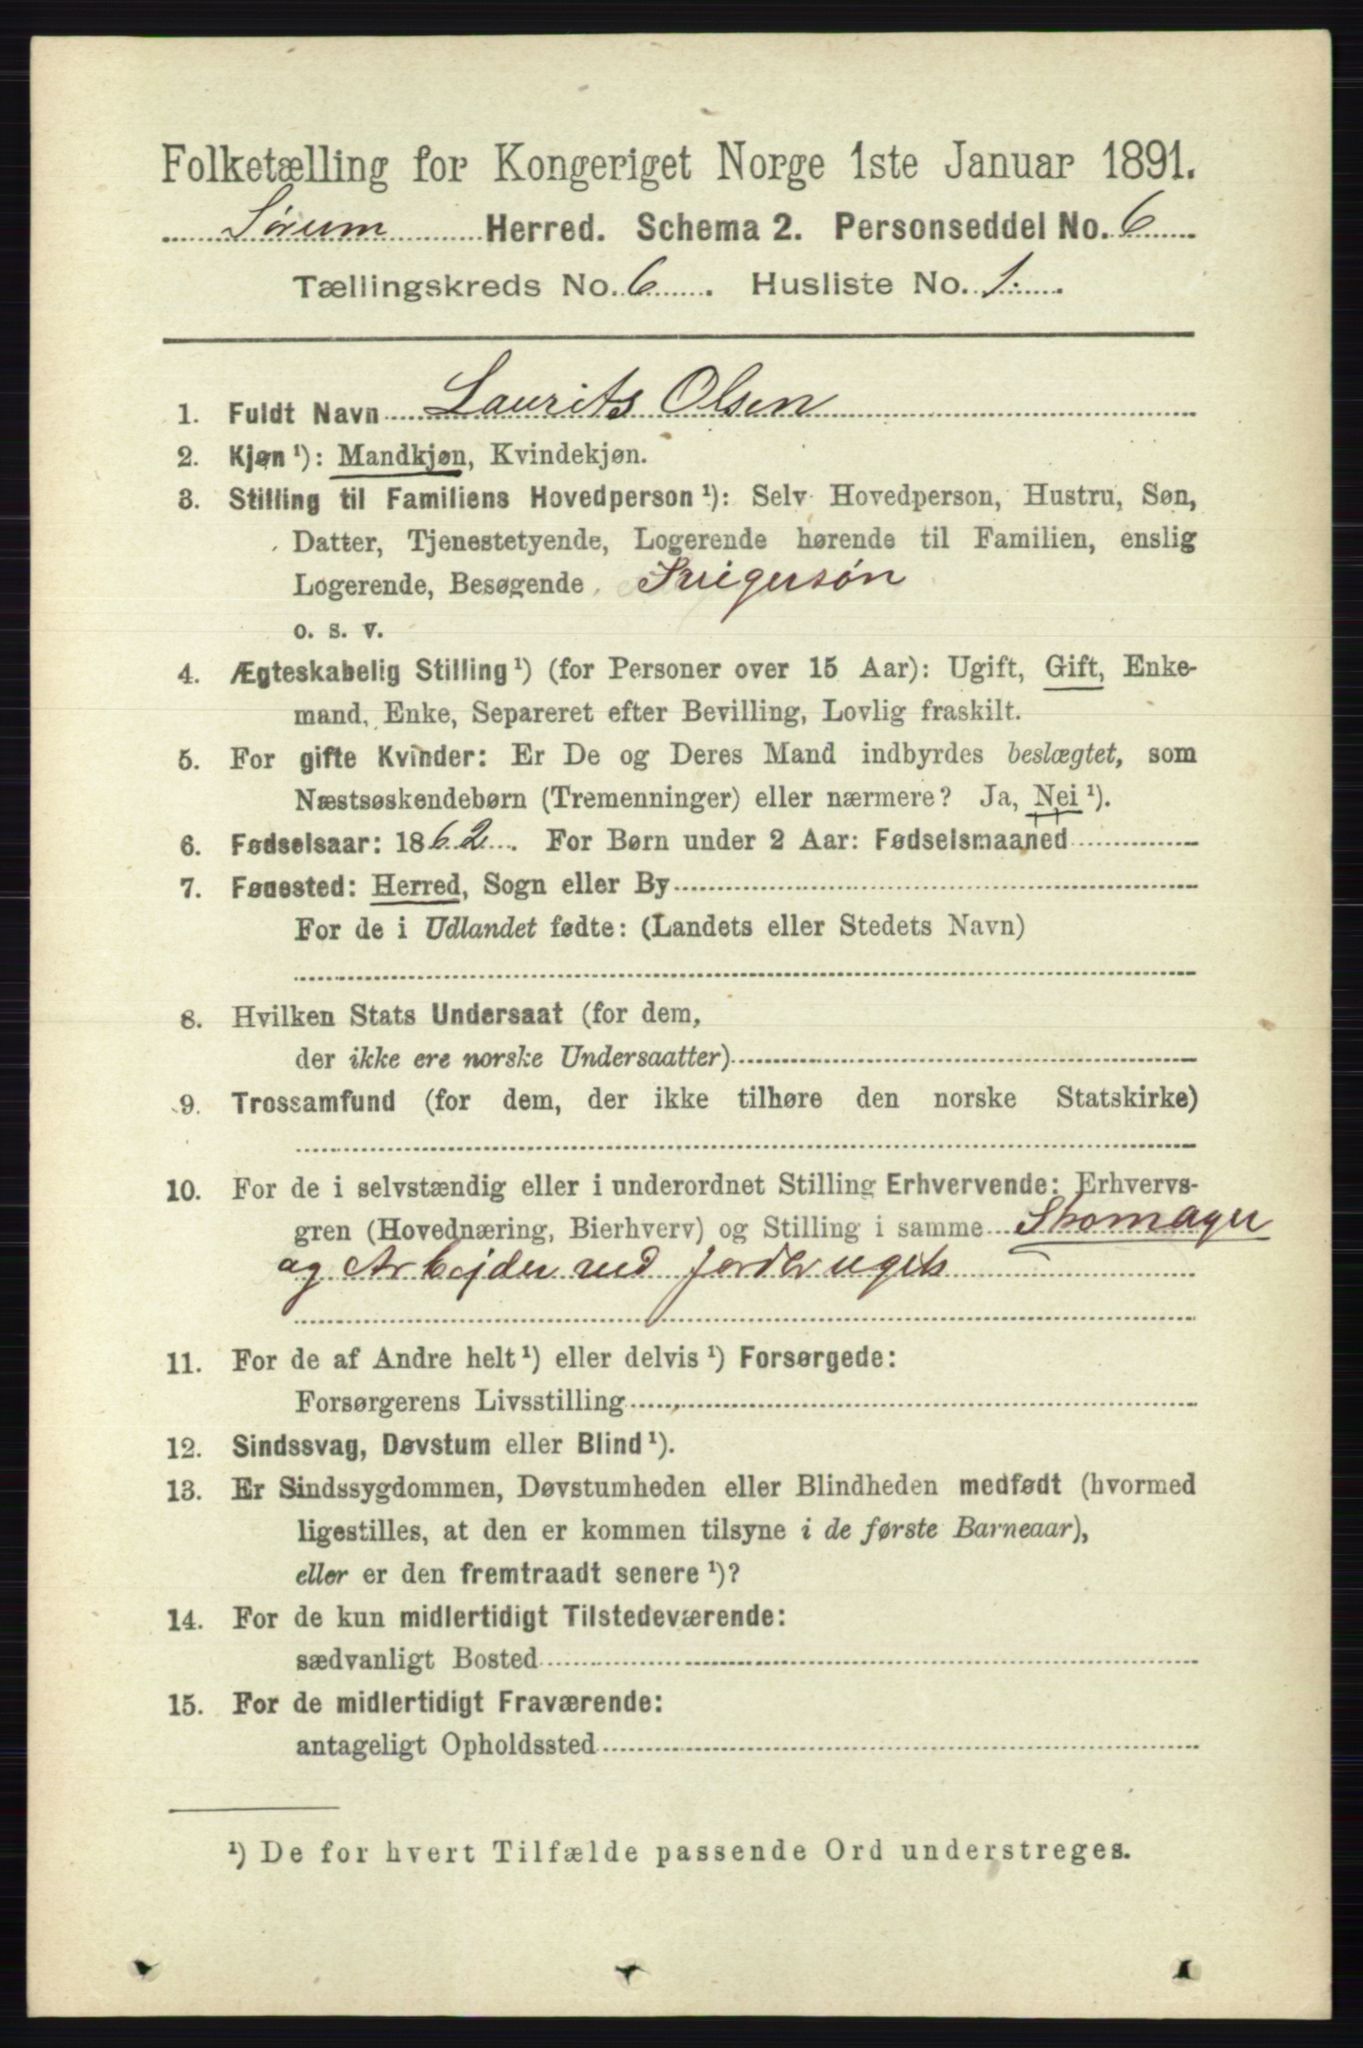 Folketælling for Kongeriget Norge 1ste Januar 1891.
Sørum Herred. Schema 2. Personseddel No. 6
Tællingskreds No. 6. Husliste No. 1.
1. Fuldt Navn Laurits Olsen
2. Kjøn ¹): Mandkjøn, Kvindekjøn.
3. Stilling til Familiens Hovedperson ¹): Selv Hovedperson, Hustru, Søn,
Datter, Tjenestetyende, Logerende hørende til Familien, enslig
Logerende, Besøgende Svigersøn
o. s. v.
4. Ægteskabelig Stilling ¹) (for Personer over 15 Aar): Ugift, Gift, Enke-
mand, Enke, Separeret efter Bevilling, Lovlig fraskilt.
5. For gifte Kvinder: Er De og Deres Mand indbyrdes beslægtet, som
Næstsøskendebørn (Tremenninger) eller nærmere? Ja, Nei ¹).
6. Fødselsaar: 1862. For Børn under 2 Aar: Fødselsmaaned
7. Fødested: Herred, Sogn eller By
For de i Udlandet fødte: (Landets eller Stedets Navn)
8. Hvilken Stats Undersaat (for dem,
der ikke ere norske Undersaatter)
9. Trossamfund (for dem, der ikke tilhøre den norske Statskirke)
10. For de i selvstændig eller i underordnet Stilling Erhvervende: Erhvervs-
gren (Hovednæring, Bierhverv) og Stilling i samme Skomager
og Arbejder ved Jordbruget
11. For de af Andre helt ¹) eller delvis ¹) Forsørgede:
Forsørgerens Livsstilling
12. Sindssvag, Døvstum eller Blind ¹).
13. Er Sindssygdommen, Døvstumheden eller Blindheden medfødt (hvormed
ligestilles, at den er kommen tilsyne i de første Barneaar),
eller er den fremtraadt senere ¹)?
14. For de kun midlertidigt Tilstedeværende:
sædvanligt Bosted
15. For de midlertidigt Fraværende:
antageligt Opholdssted
¹) De for hvert Tilfælde passende Ord understreges.